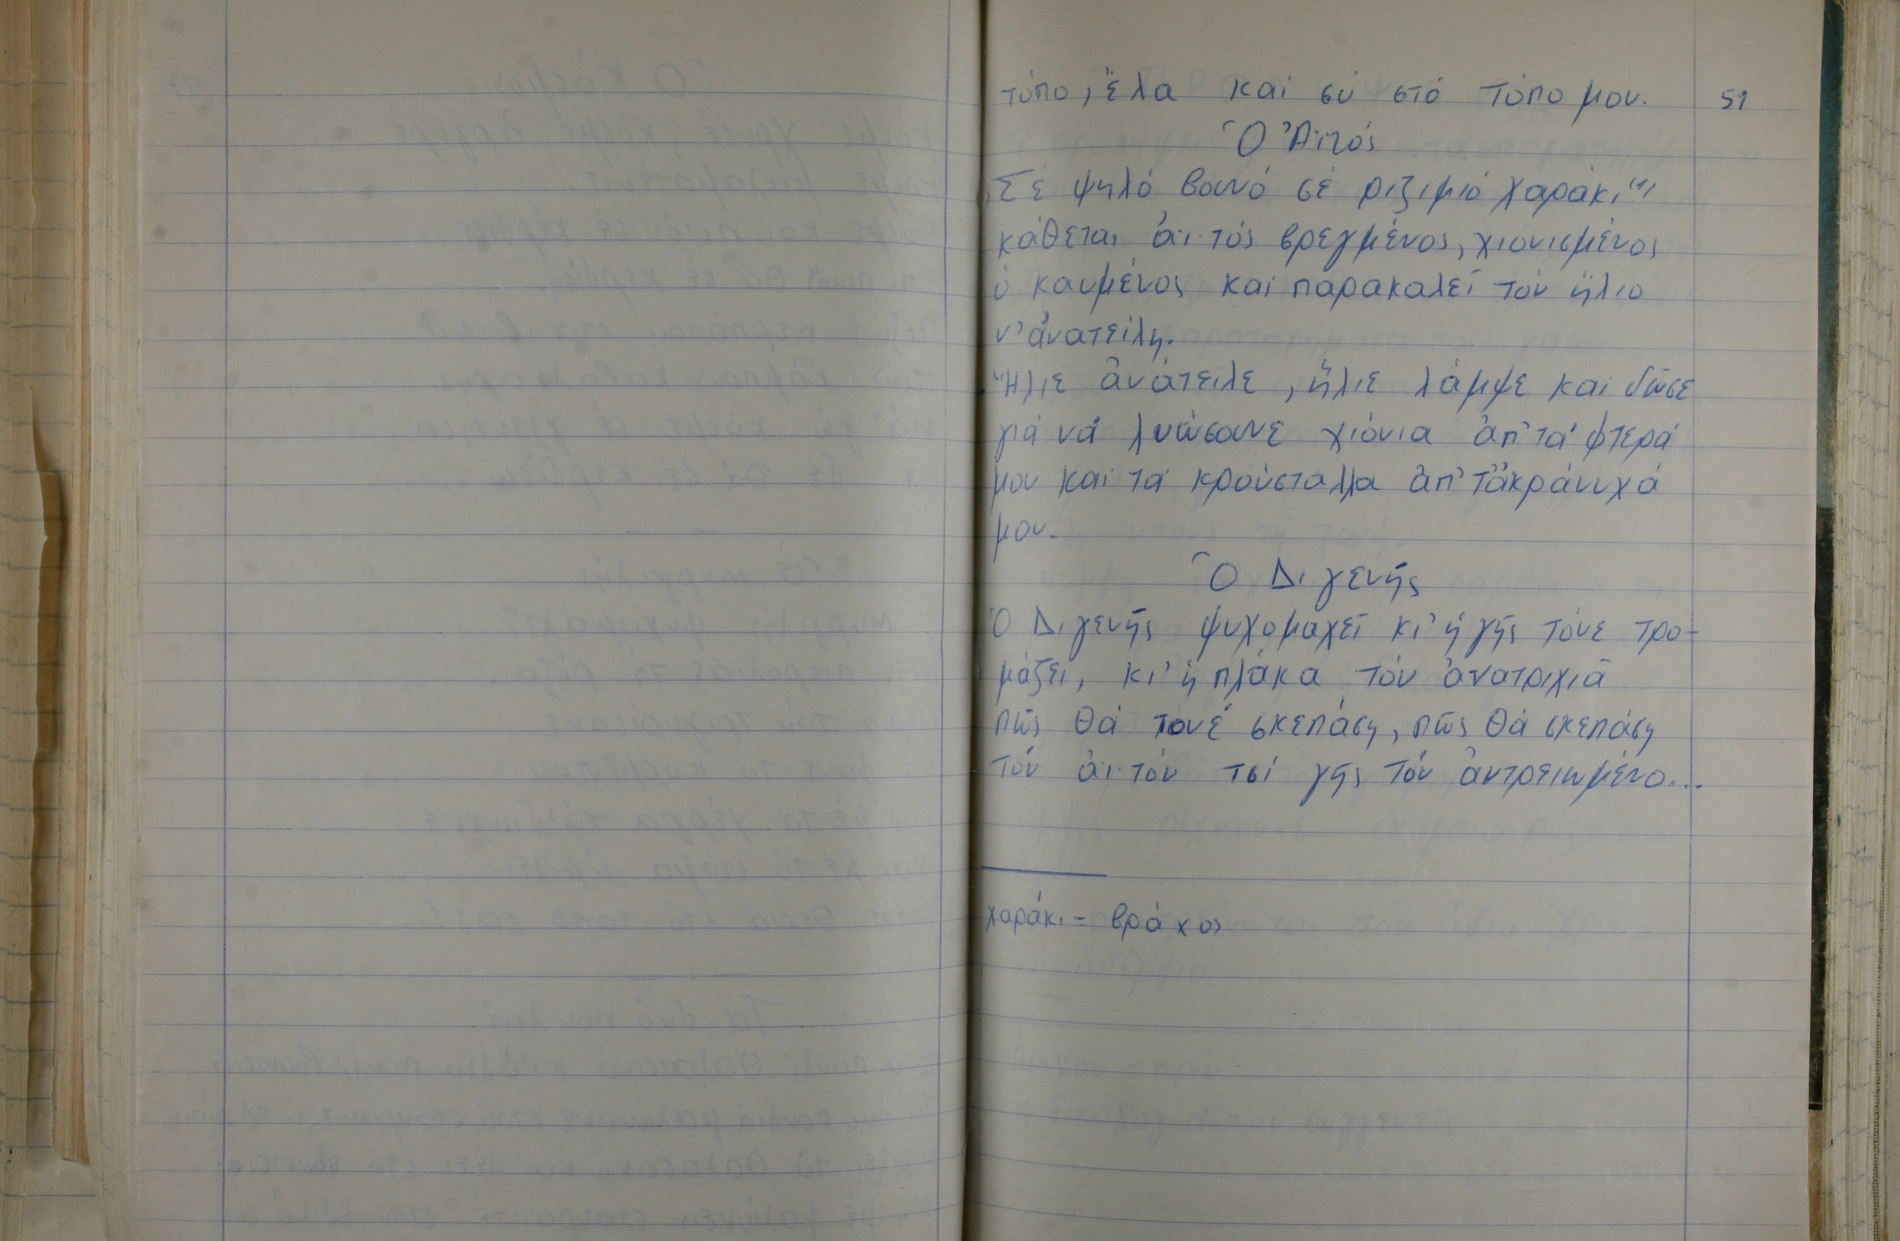 τόπο, ἔλα καί σύ στό τόπο μου. 51
Ὁ Ἀϊτός
Σέ ψηλό βουνό σέ ριζιμιό χαράκι "1
κάθεται ἀϊτός βρεγμένος, χιονισμένος
ὁ καυμένος καί παρακαλεῖ τόν ἥλιο
ν' ἀνατείλη.
Ἥλιε ἀνάτειλε, ἥλιε λάμψε καί δῶσε
γιά νά λυώσουνε χιόνια ἀπ' τά φτερά
μου καί τά κρούσταλλα ἀπ' τἄκράνυχά
μου.
Ὁ Διγενῆς
Ὁ Διγενῆς ψυχομαχεῖ κι' ἡ γῆς τόνε τρο-
μάζει, κι' ἡ πλάκα τόν ἀνατριχιᾶ
πῶς θά τονέ σκεπάση, πῶς θά σκεπάση
τόν ἀϊτόν τσί γῆς τόν ἀντρειωμένο...
χαράκι = βράχος